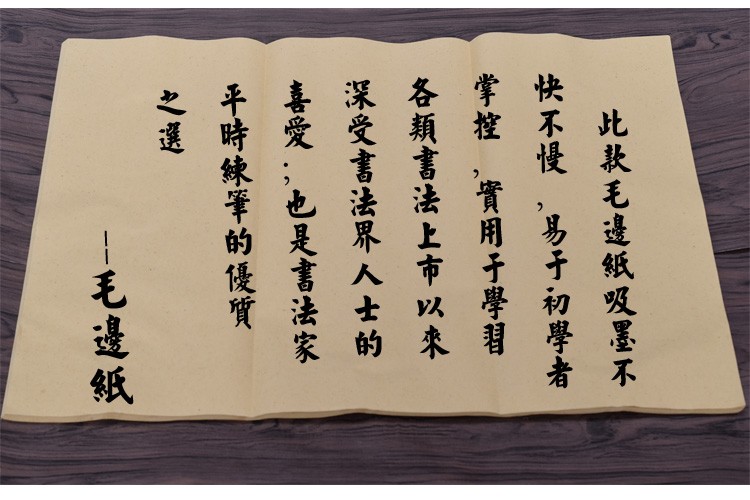 此款毛邊紙吸墨不
快不慢,易于初學者
掌控,實用于學習
各類書法上市以來
深受書法界人士的
喜愛.;也是書法家
平時練筆的優質
之選
——毛邊紙